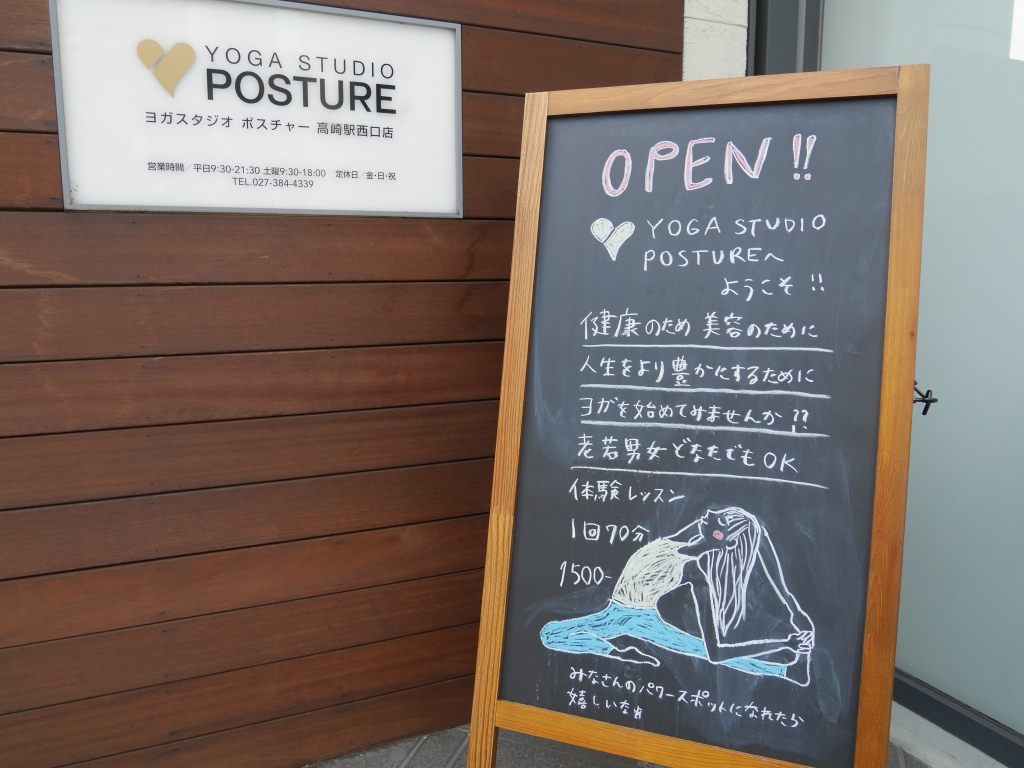 YOGA STUDIO
POSTURE
ヨガスタジオ ポスチャー 高崎駅西口店
営業時間／平日9:30-21:30 土曜9:30-18:00 定休日／金・日・祝
TEL.027-384-4339
OPEN!!
YOGA STUDIO
POSTUREへ
ようこそ!!
健康のため 美容のために
人生をより豊かにするために
ヨガを始めてみませんか??
老若男女どなたでもOK
体験レッスン
1回70分
1500-
みなさんのパワースポットになれたら
嬉しいな